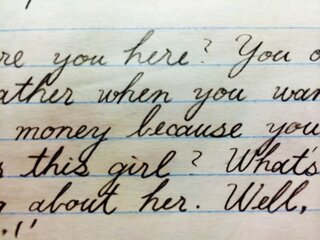 re you here? You o
ather when you wan
money because you
s this girl? What's
about her. Well,
."